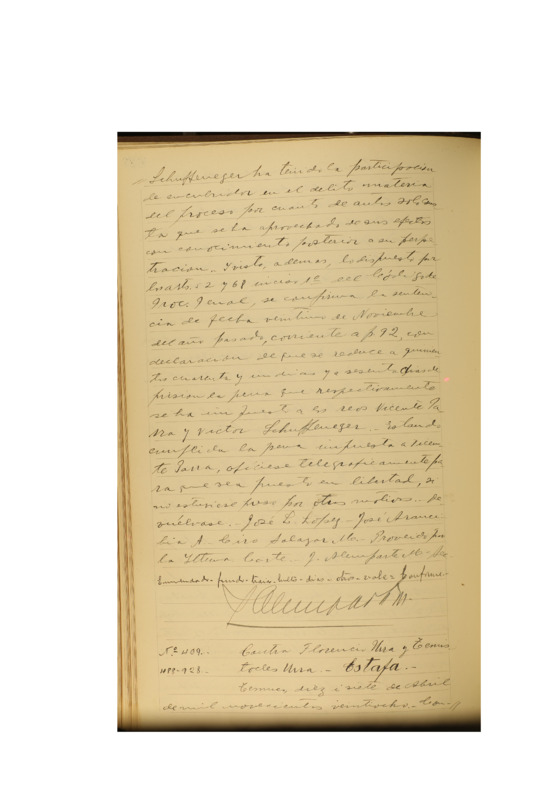 Schuffeneger ha tenido la participacion
de encubridor en el delito materia
del proceso por cuanto de autos solo cons
ta que se ha aprovechado de sus efectos
con conocimiento posterior a su perpe
tracion. - Visto, ademas, lo dispuesto por
los arts. 62 y 68 inciso 1º del Código de
Proc. Penal, se confirma la senten-
cia de fecha veintiuno de Noviembre
del año pasado, corriente a f. 92, con
declaracion de que se reduce a quinien
tos cuarenta y un dias y a sesenta dias de
prision la pena que respectivamente
se ha impuesto a los reos Vicente Pa
rra y Victor Schuffeneger. - Estando
cumplida la pena impuesta a Vicen
te Parra, ofíciese telegraficamente pa
ra que sea puesto en libertad, si
no estuviere preso por otros motivos. - De
vuélvase. - José L. López - José Arance
bia A. - Ciro Salazar M. - Proveido por
la Iltma Corte. - J. Alemparte M. -
Enmendado - - dias - otros - vale - Conforme -
Nº 409. - Contra Florencio Urra y Temis
489-928 - tocles Urra - Estafa. -
Temuco, diez i siete de Abril
de mil novecientos veintiocho. -